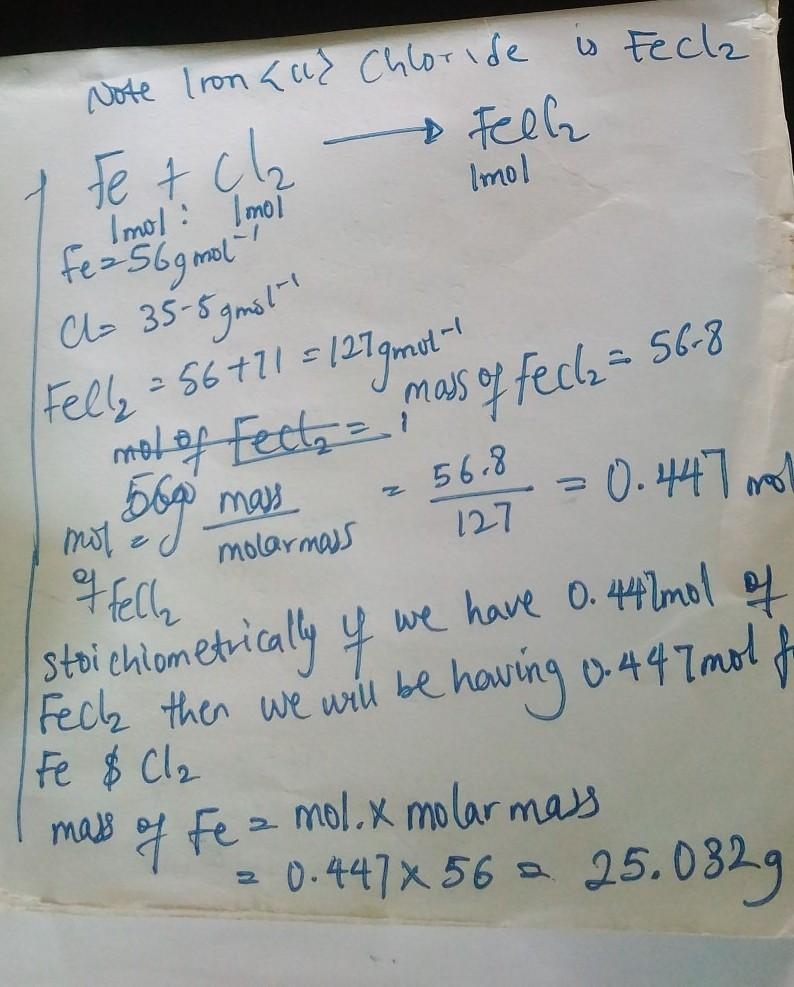 Note Iron <II> Chloride is FeCl2
Fe + Cl2 → FeCl2
1mol : 1mol 1mol
Fe = 56gmol-1
Cl = 35.5gmol-1
FeCl2 = 56+71 = 127gmol-1
mass of FeCl2 = 56.8
mol of FeCl2 =
56g
mol = mass / molarmass = 56.8 / 127 = 0.447 mol
of FeCl2
stoichiometrically if we have 0.447mol of
FeCl2 then we will be having 0.447mol f
Fe $ Cl2
mass of Fe = mol. x molar mass
= 0.447 x 56 = 25.032g